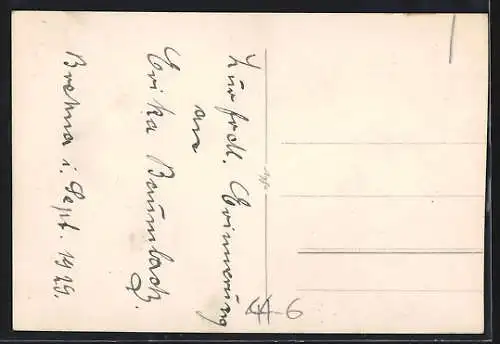 Zur frdl. Erinnerung
an
Erika Baumbach.
Brehna i. Sept. 1929.
4-6